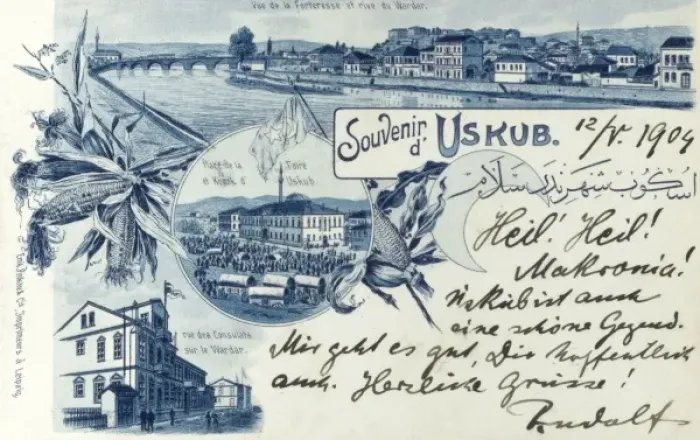 Vue de la Forteresse et rive du Wardar.
Souvenir
d'USKUB.
12/V. 1904
اسكوب شهرندن سلام
Place de la Foire
et Konak d'Uskub
Heil! Heil!
Makronia!
Üsküb ist auch
eine schöne Gegend.
Mir geht es gut, Dir hoffentlich
auch. Herzliche Grüsse!
Rudolf
rue des Consulats
sur le Wardar.
Imprimeurs à Leipzig.